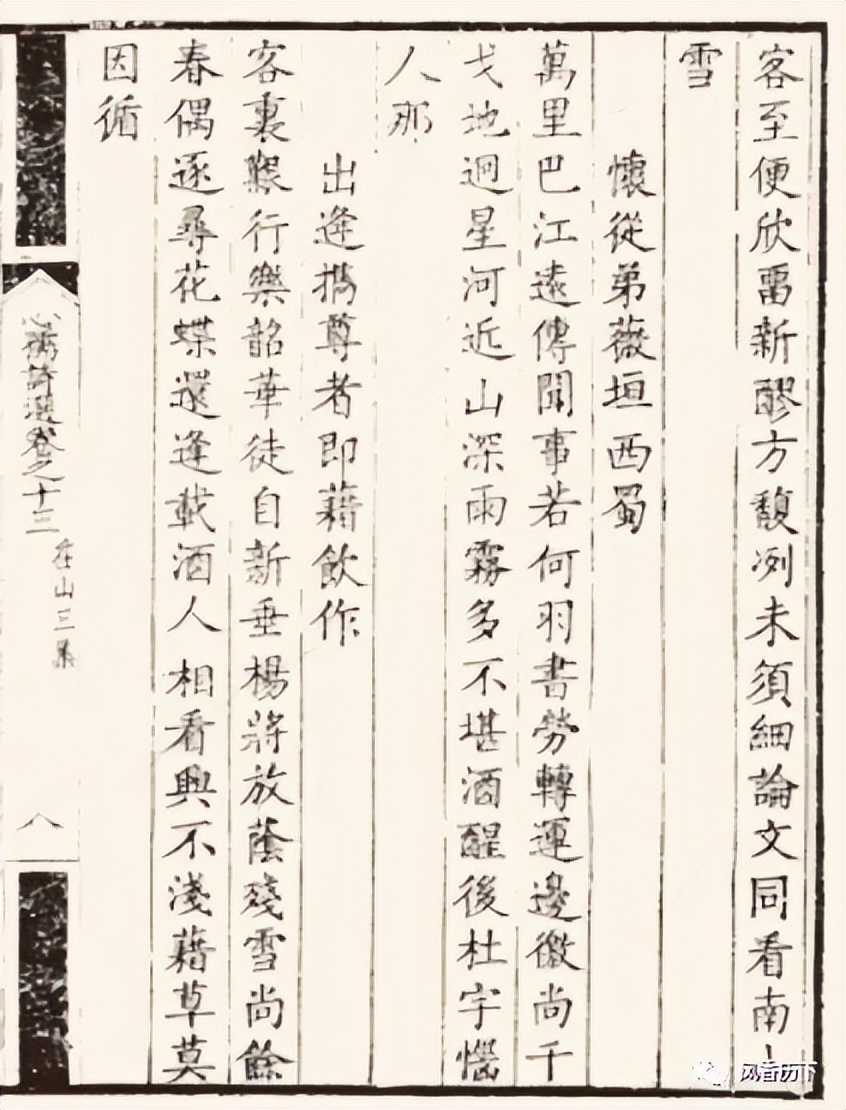 客至便欣畱新醪方馥冽未須細論文同看南
雪
懷從弟薇垣西蜀
萬里巴江遠傳聞事若何羽書勞轉運邊徼尚千
戈地迥星河近山深雨霧多不堪酒醒後杜宇惱
人那
出逢攜尊者即藉飲作
客裏艱行樂韶華徒自新垂楊將放蔭殘雪尚餘
春偶逐尋花蝶還逢載酒人相看興不淺藉草莫
因循
詩選卷之十三
在山三集
八
风香历下